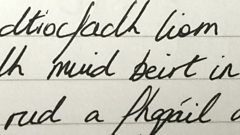 dtiocfadh liom
muid beirt in
rud a fhágáil